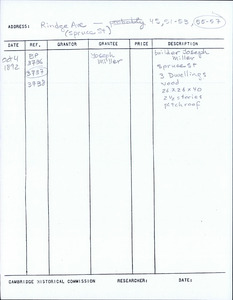 ADDRESS: Rindge Ave — probably 45, 51-53, 55-57
(Spruce St)
DATE REF. GRANTOR GRANTEE PRICE DESCRIPTION
Oct 4 BP Joseph builder Joseph
1892 3736 Miller Miller
3737 Spruce St
3738 3 Dwellings
wood
26 x 26 x 40
2 1/2 stories
pitch roof
CAMBRIDGE HISTORICAL COMMISSION RESEARCHER: DATE: